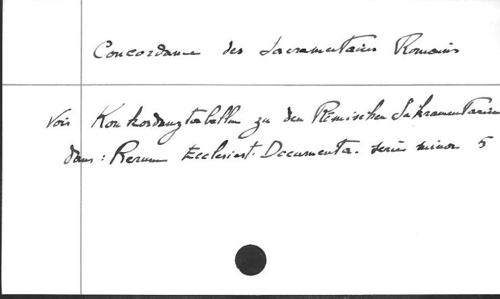 Concordance des Sacramentaires Romains
Voir Konkordanztabellen zu den Römischen Sakramentarien
dans : Rerum Ecclesiast. Documenta. series minor 5